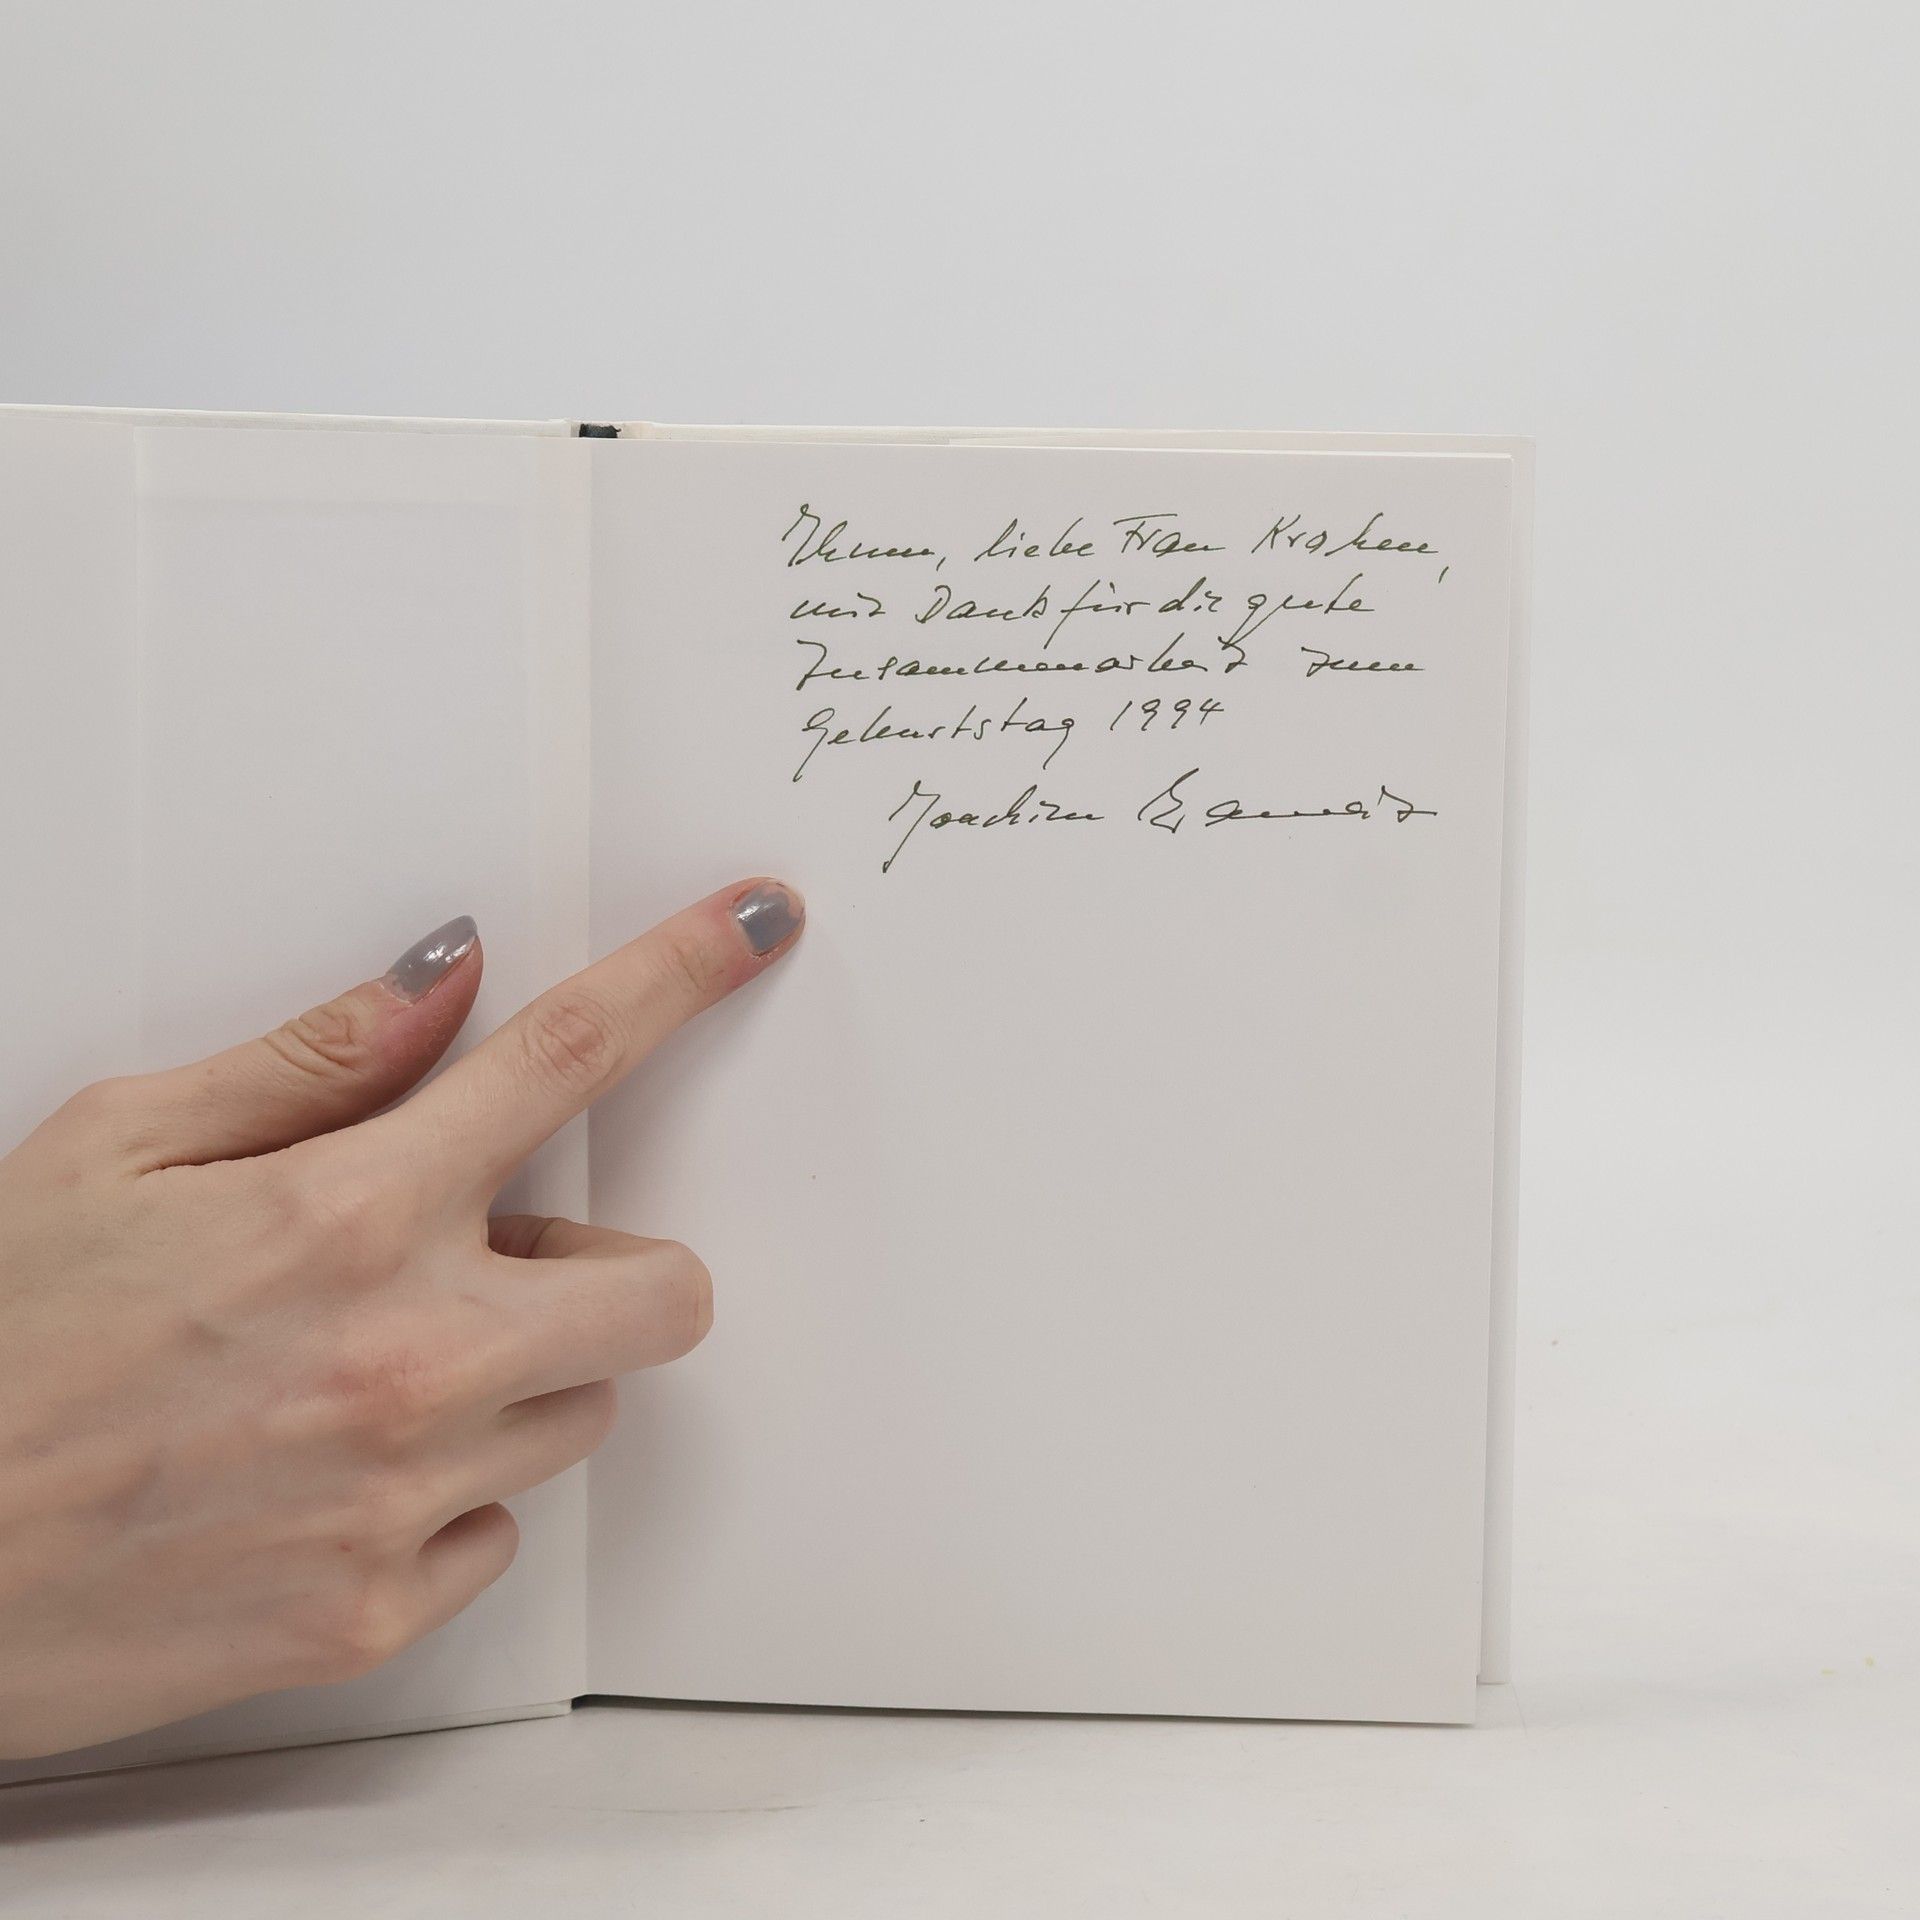 Ihnen, liebe Frau Kraken,
mit Dank für die gute
Zusammenarbeit zum
Geburtstag 1994
Joachim